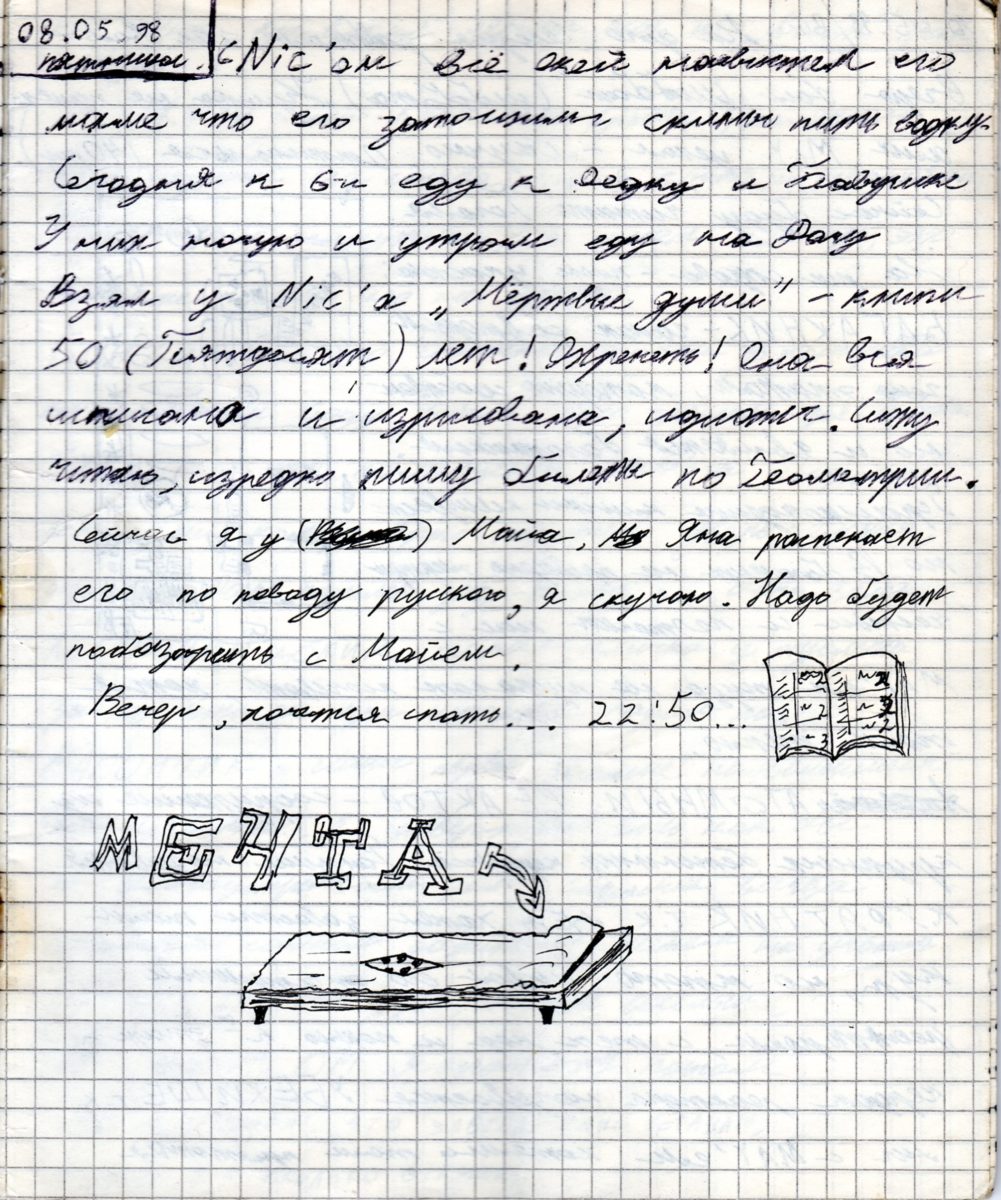 08.05.98
пятница. С Nic'ом всё окей его
маме что его затощили пить водку.
Сегодня к 6-и еду к Дедку и Бабушке
У них ночую и утром еду на Дачу
Взял у Nic'а „Мёртвые души" – книги
50 (Пятдесят) лет! Охренеть! Она вся
исписана и изрисована, идиоты. Сижу
читаю, изредко пишу билеты по Геометрии.
Сейчас я у Майа, Яна распекает
его по поводу руского, я скучаю. Надо будет
побазарить с Майем.
Вечер, хочется спать... 22:50...
МЕЧТА